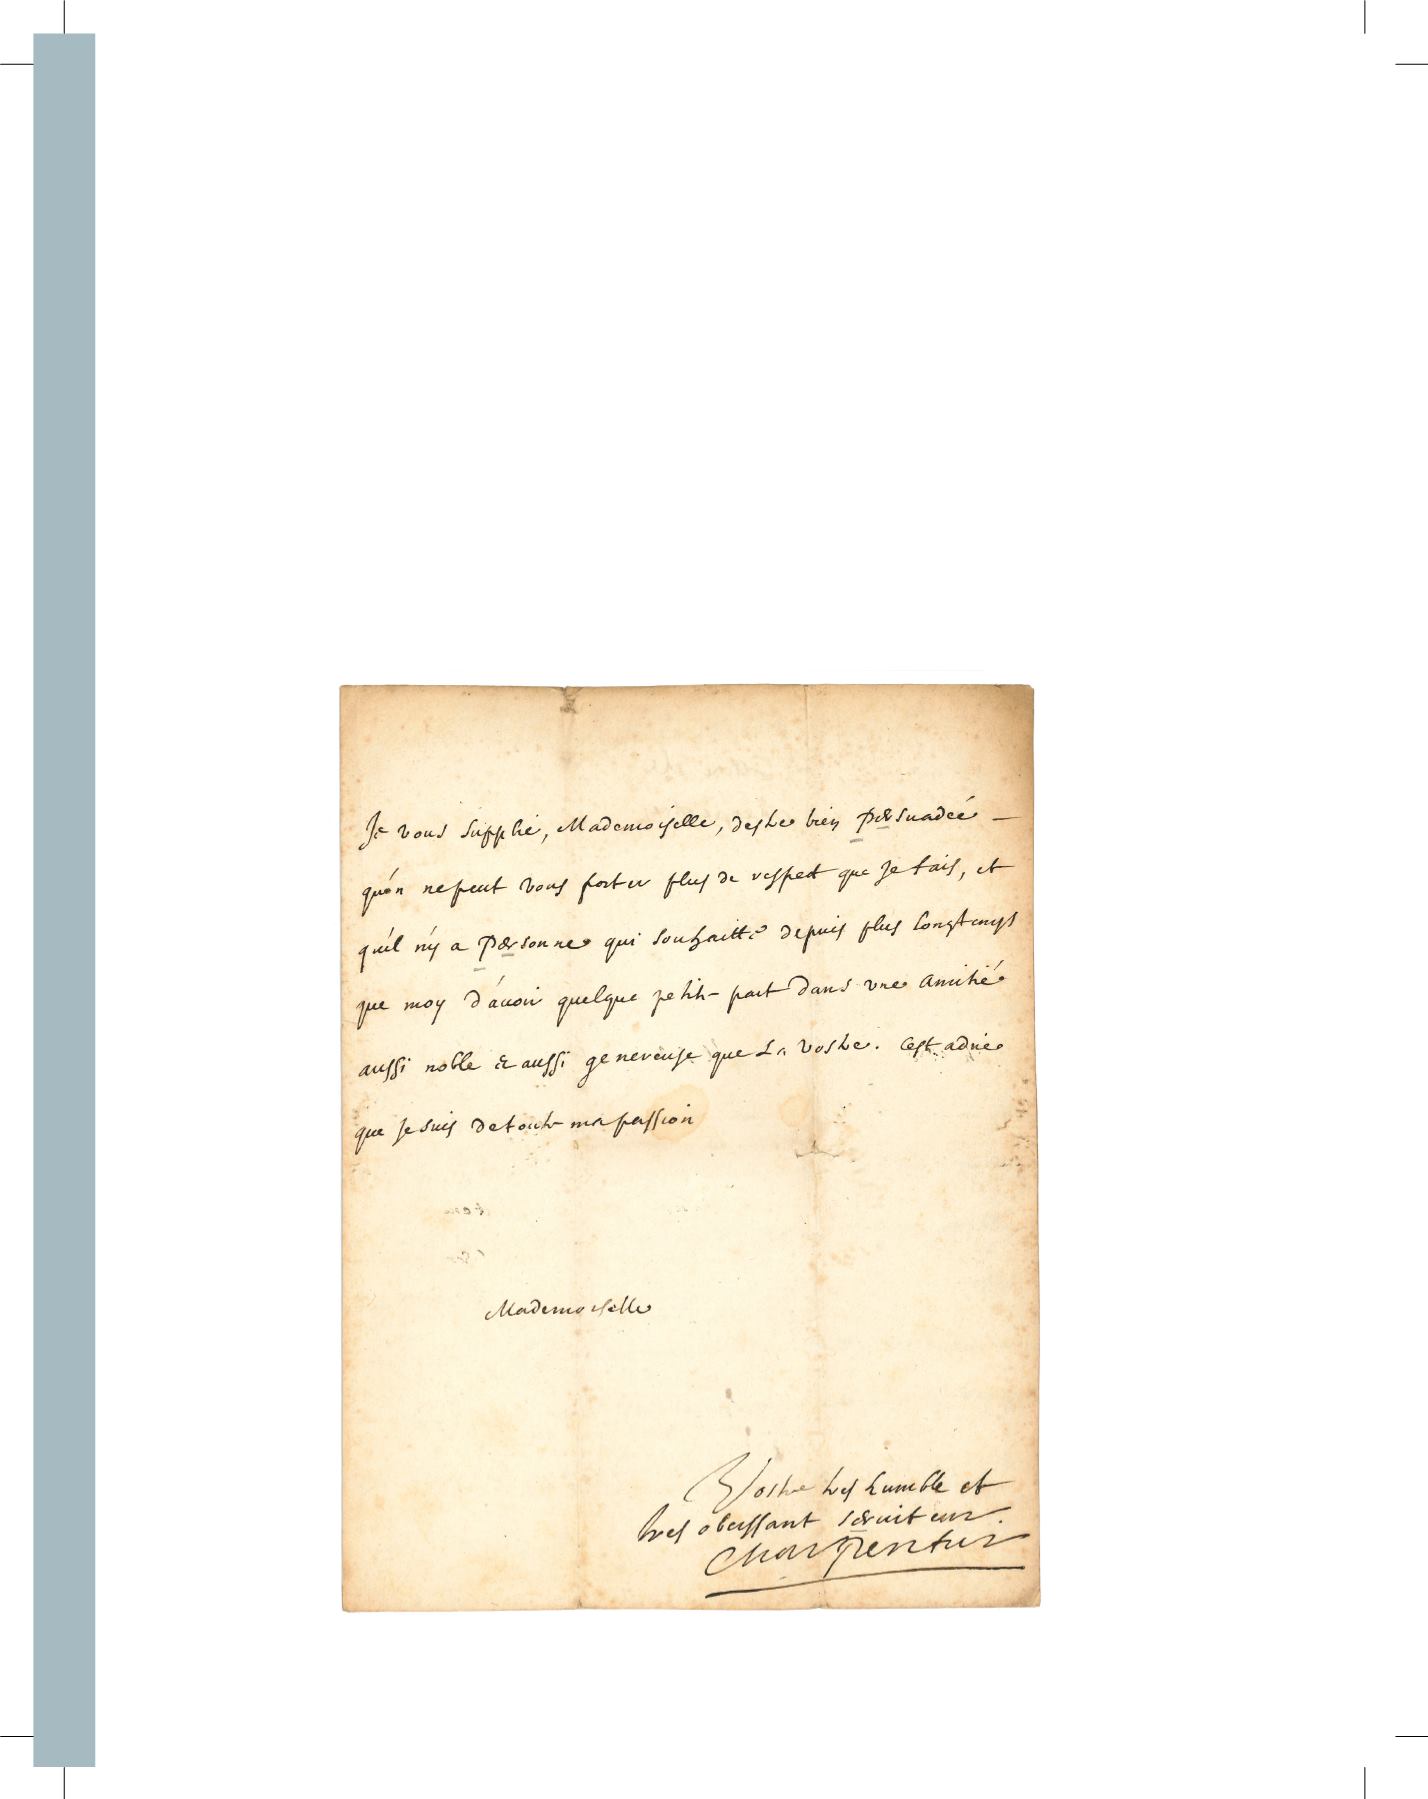 Je vous supplie, Mademoiselle, destre bien persuadée –
qu'on ne peut vous porter plus de respect que je fais, et
qu'il n'y a personne qui souhaitte depuis plus longtemps
que moy d'avoir quelque petite part dans vne amitié
aussi noble & aussi genereuse que La vostre. Cest
que je suis de toute ma passion
Mademoiselle
Vostre tres humble et
tres obeissant seruiteur.
Charpentier